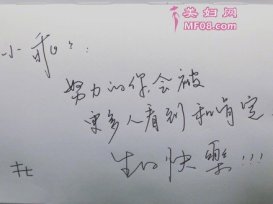 美妇网
MF08.com
小
努力的你,会被
更多人看到和肯定
生日快樂!!!